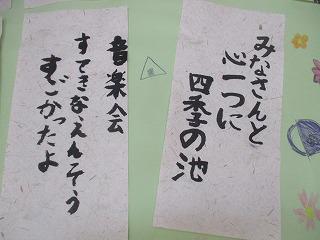 みなさんと
心一つに
四季の池
音楽会
すてきなえんそう
すごかったよ